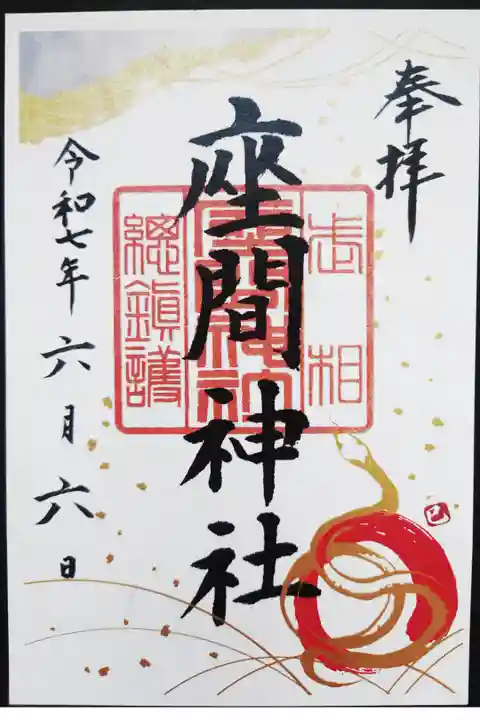 奉拝
武相
座間神社
座間神社
總鎮護
令和七年六月六日
巳